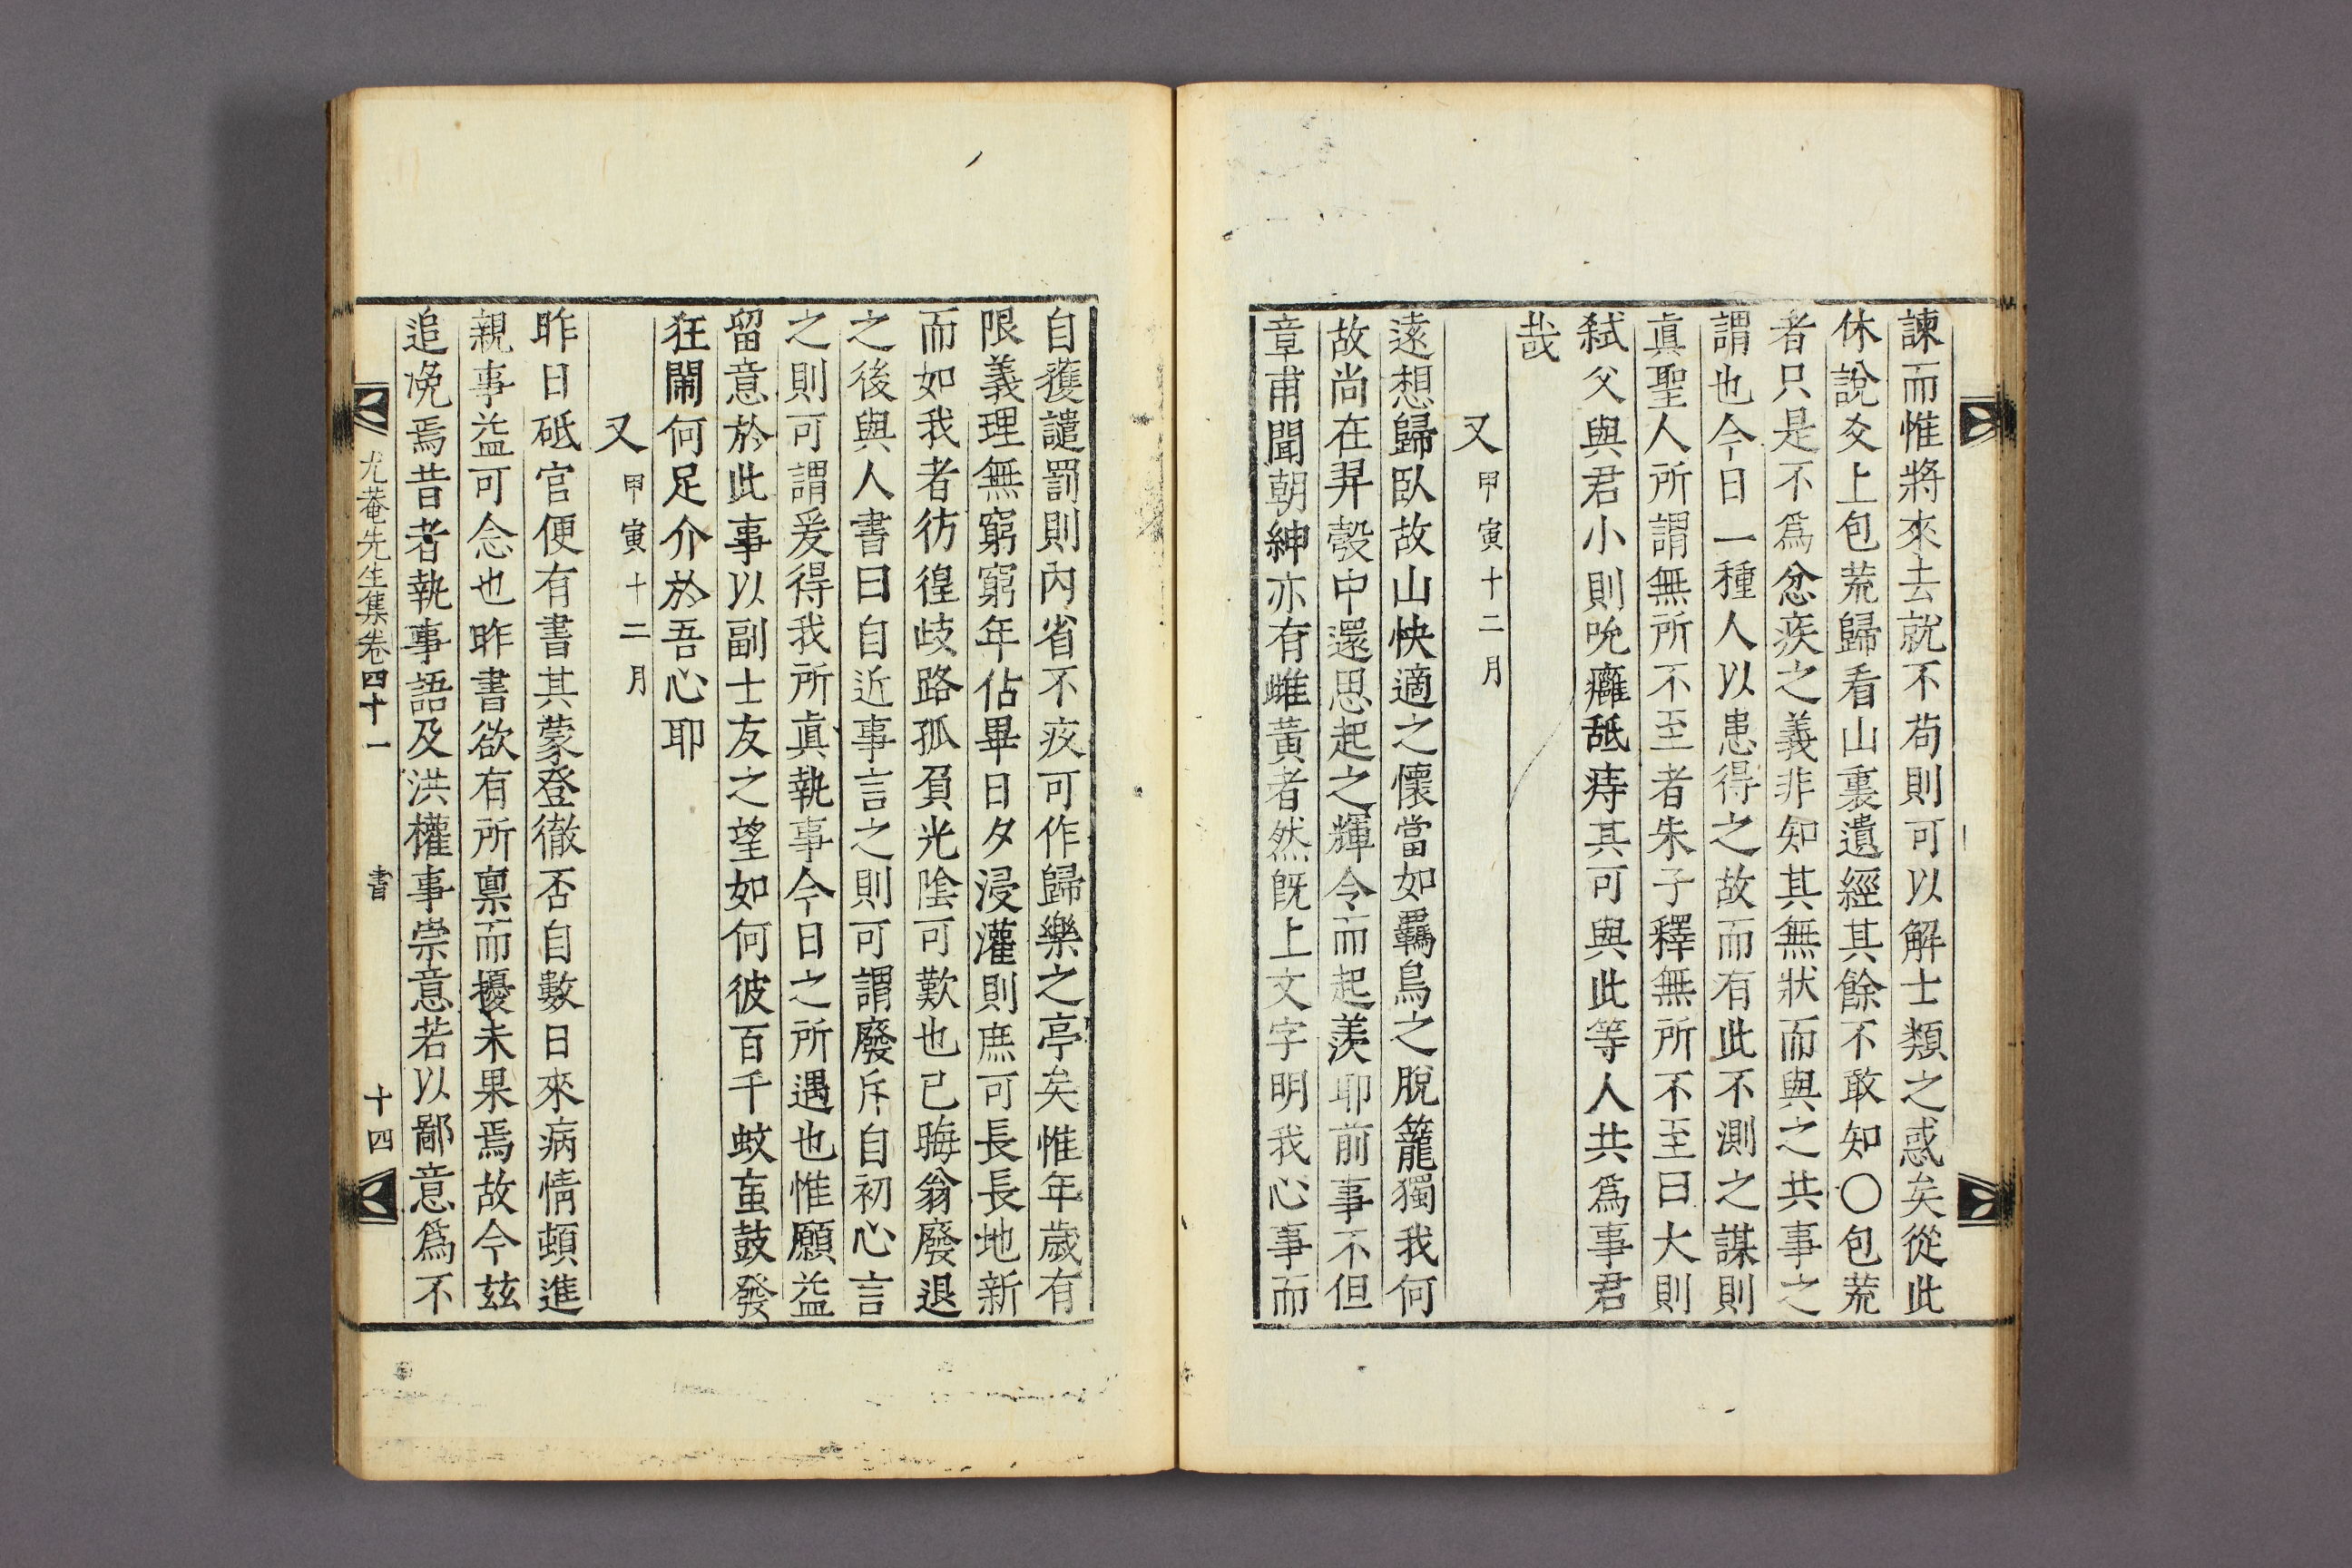 諫而惟將來去就不苟則可以解士類之惑矣從此
休說爻上包荒歸看山裏遺經其餘不敢知○包荒
者只是不爲忿疾之義非知其無狀而與之共事之
謂也今日一種人以患得之故而有此不測之謀則
眞聖人所謂無所不至者朱子釋無所不至曰大則
弑父與君小則吮癰舐痔其可與此等人共爲事君
哉
又甲寅十二月
遠想歸臥故山快適之懷當如羈鳥之脫籠獨我何
故尙在羿彀中還思起之輝令而起羨耶前事不但
章甫聞朝紳亦有雌黃者然旣上文字明我心事而
自獲譴罰則內省不疚可作歸樂之亭矣惟年歲有
限義理無窮窮年佔畢日夕浸灌則庶可長長地新
而如我者彷徨歧路孤負光陰可歎也已晦翁廢退
之後與人書曰自近事言之則可謂廢斥自初心言
之則可謂爰得我所眞執事今日之所遇也惟願益
留意於此事以副士友之望如何彼百千蚊䖟鼓發
狂鬧何足介於吾心耶
又甲寅十二月
昨日砥官便有書其蒙登徹否自數日來病情頓進
親事益可念也昨書欲有所稟而擾未果焉故今玆
追浼焉昔者執事語及洪權事崇意若以鄙意爲不
尤菴先生集卷四十一 書 十四